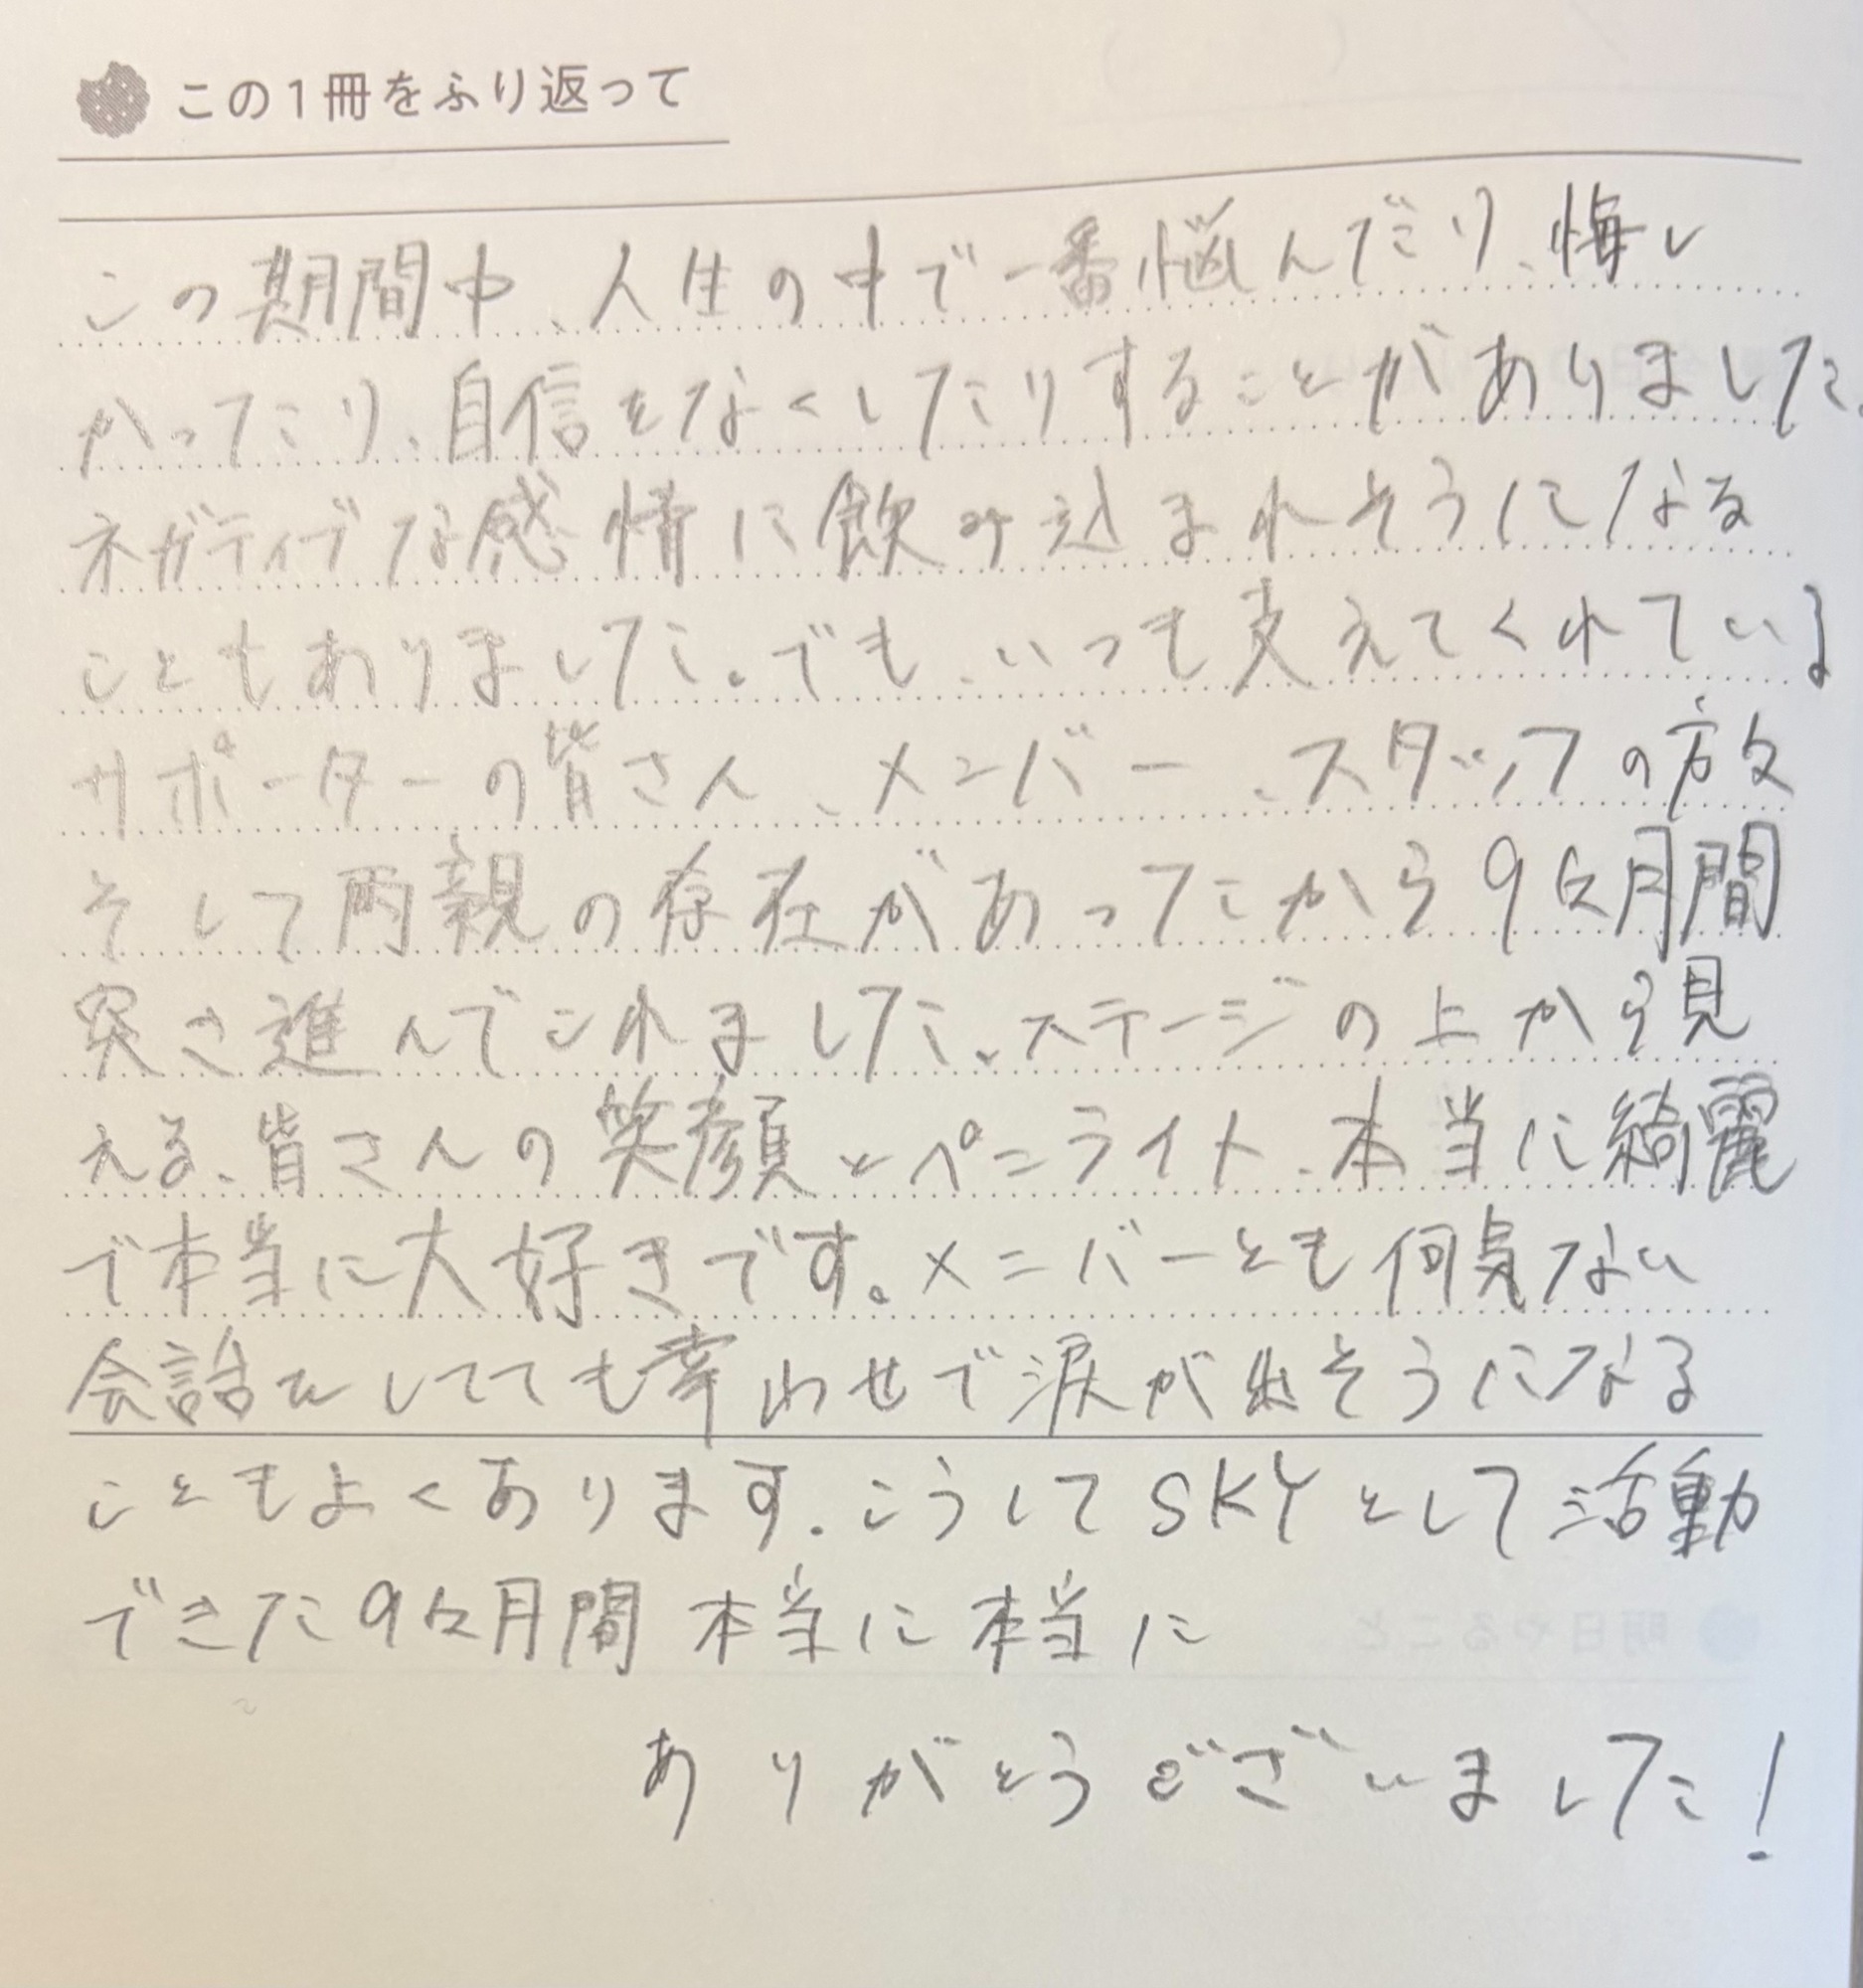 この1冊をふり返って
この期間中、人生の中で一番悩んだり、悔し
かったり、自信をなくしたりすることがありました。
ネガティブな感情に飲み込まれそうになる
こともありました。でも、いつも支えてくれている
サポーターの皆さん、メンバー、スタッフの方々
そして両親の存在があったから9ヶ月間
突き進んでこれました。ステージの上から見
える、皆さんの笑顔とペンライト、本当に綺麗
で本当に大好きです。メンバーとも何気ない
会話をしてても幸わせで涙が出そうになる
こともよくあります。こうしてSKYとして活動
できた9ヶ月間 本当に本当に
ありがとうございました!
明日やること